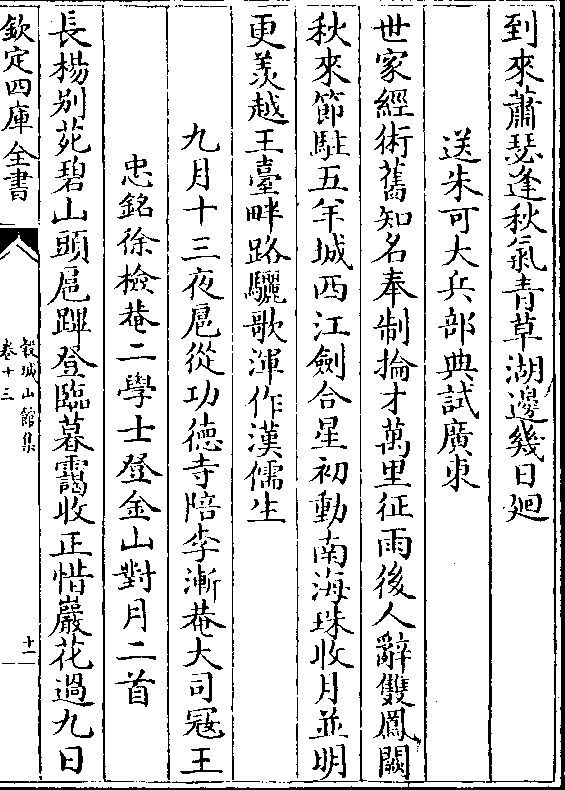 到來蕭瑟逢秋氣青草湖邊幾日廻
送朱可大兵部典試廣東
世家經術舊知名奉制掄才萬里征雨後人辭雙鳳闕
秋來節駐五羊城西江劍合星初動南海珠收月並明
更羨越王臺畔路驪歌渾作漢儒生
九月十三夜扈從功德寺陪李漸菴大司寇王
忠銘徐檢菴二學士登金山對月二首
長楊别苑碧山頭扈蹕登臨暮靄收正惜巖花過九日
欽定四庫全書
榖城山館集
卷十三
十一